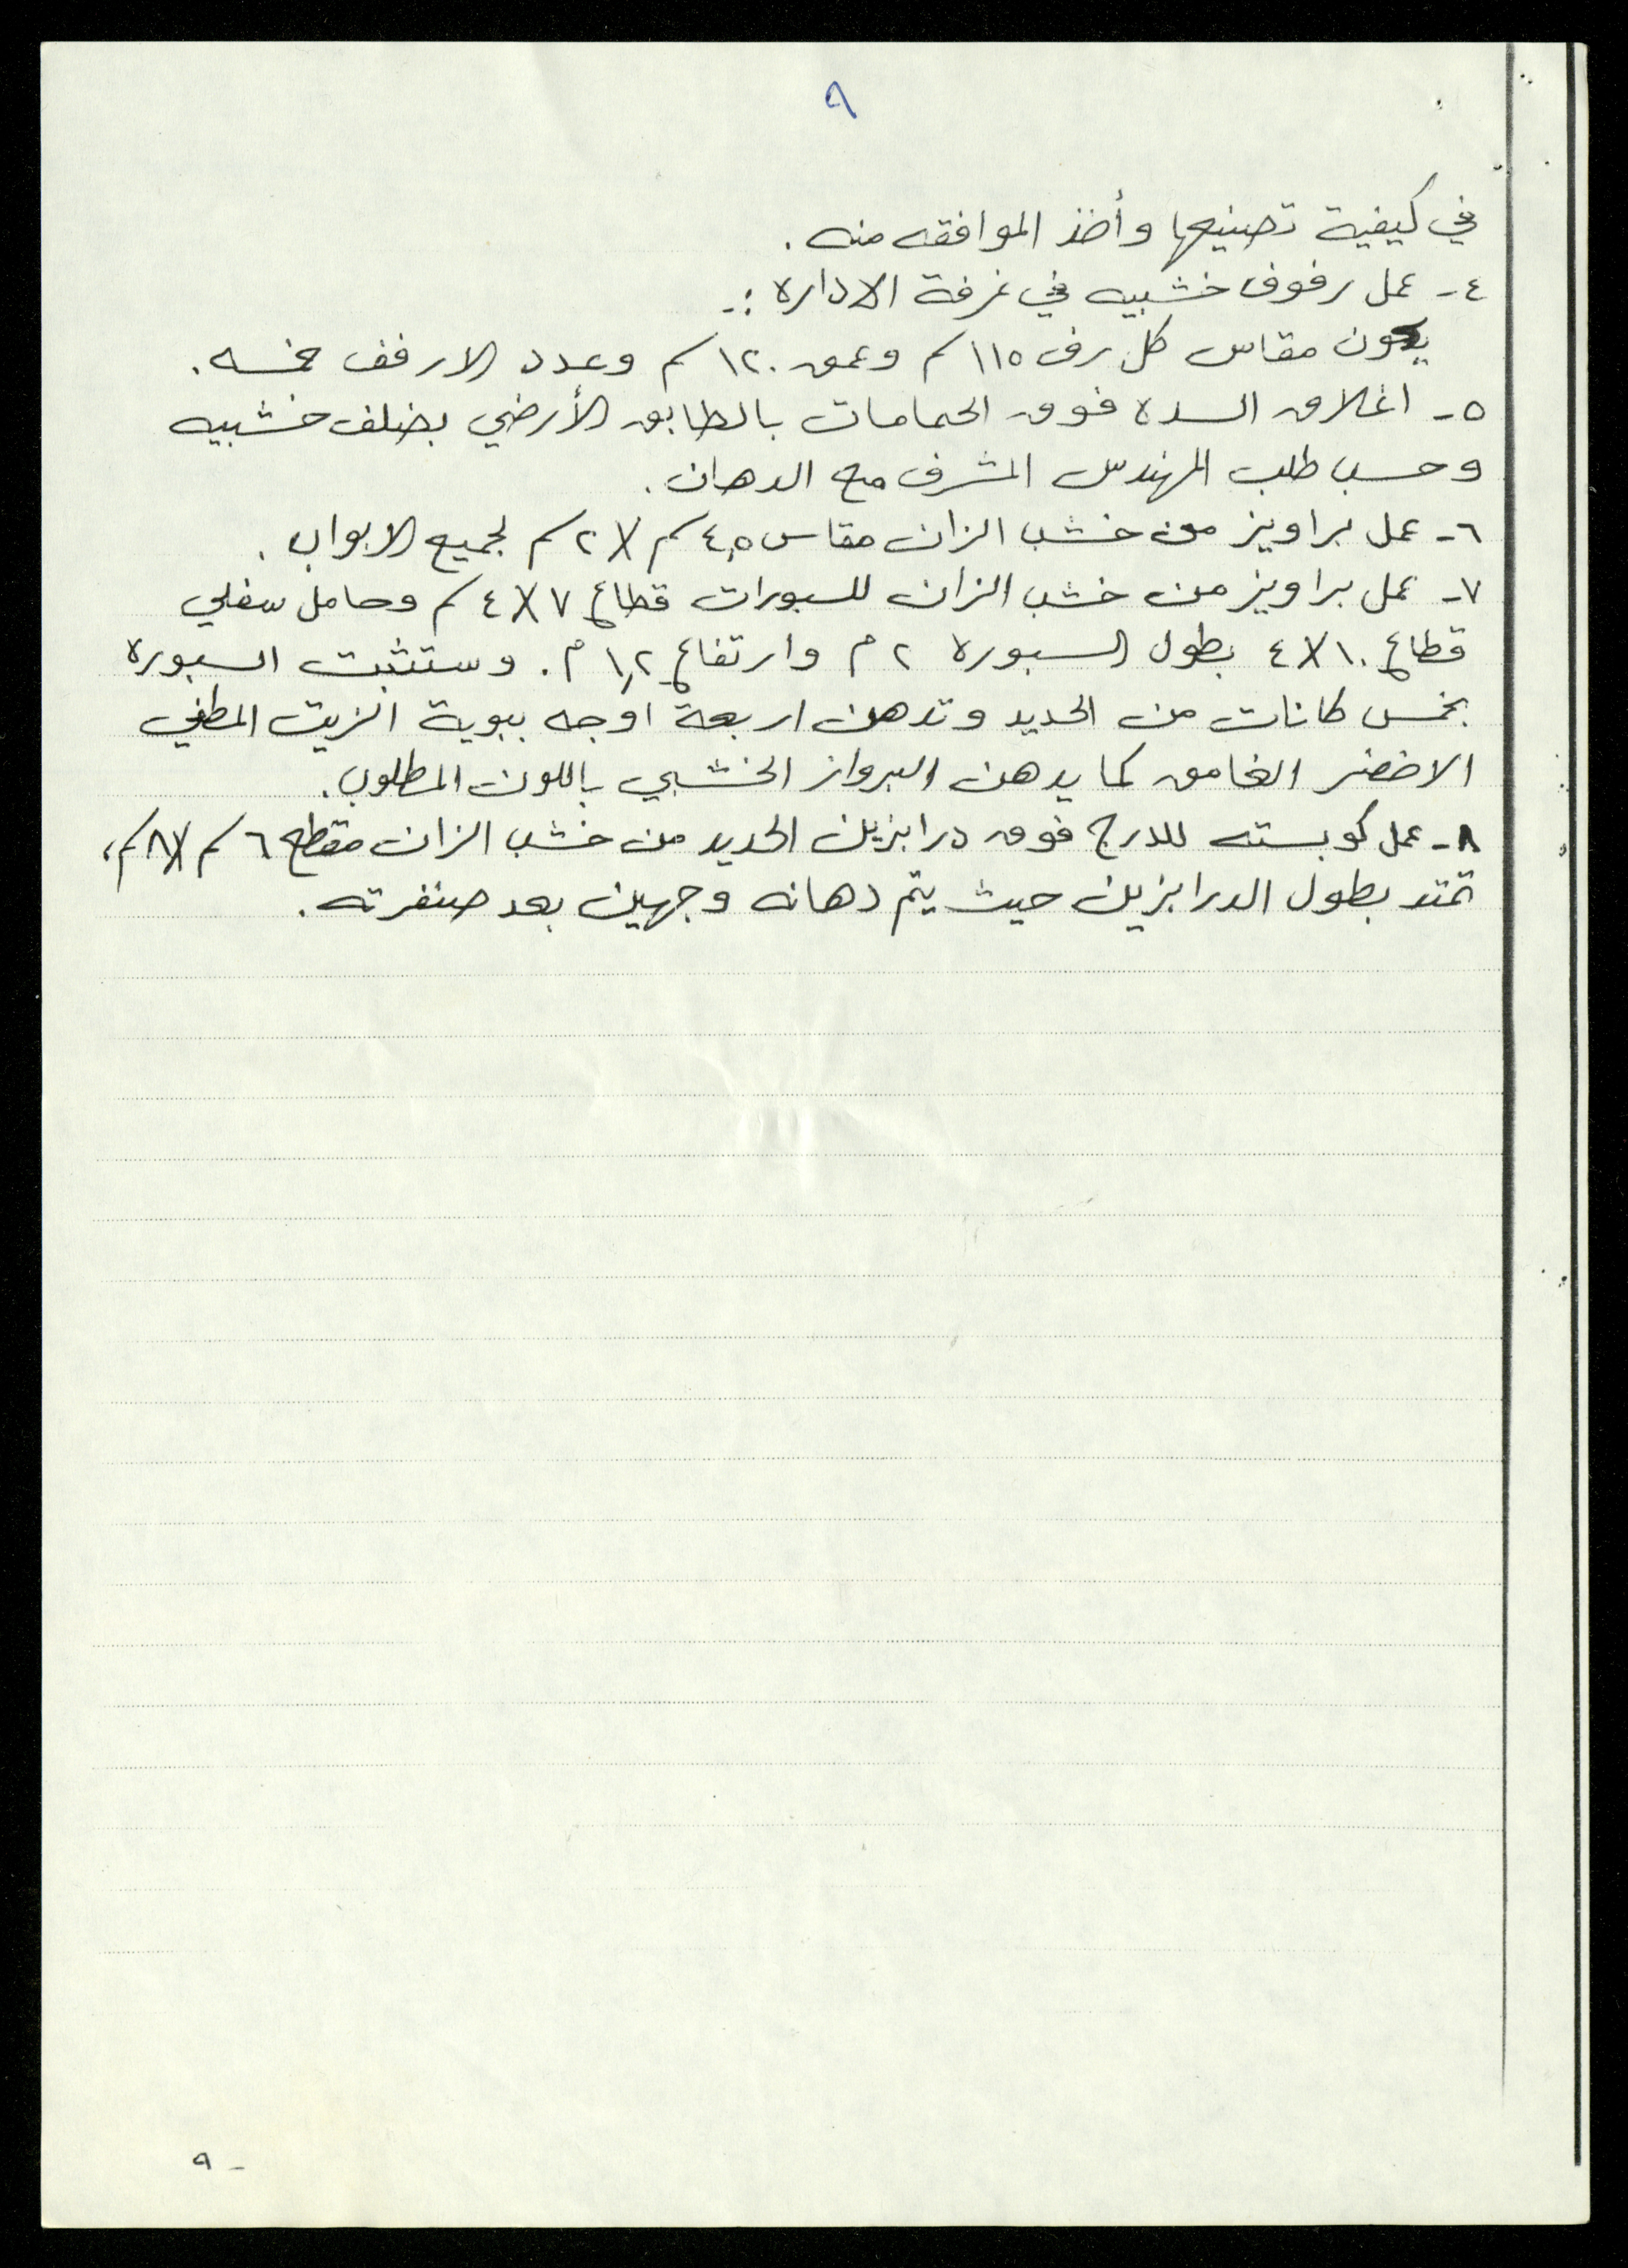 ٩
في كيفية تصنيعها وأخذ الموافقه منه .
٤- عمل رفوف خشبيه في غرفة الاداره :-
يكون مقاس كل رف ١١٥ سم وعمق ١٢٠ سم وعدد الارفف خمسه .
٥- اغلاق السده فوق الحمامات بالطابق الأرضي بضلف خشبيه
وحسب طلب المهندس المشرف مع الدهان .
٦- عمل براويز من خشب الزان مقاس ٤,٥ سم X ٢ سم لجميع الابواب .
٧- عمل براويز من خشب الزان للسبورات قطاع ٧ X ٤ سم وحامل سفلي
قطاع ١٠ X ٤ بطول السبورة ٢ م وارتفاع ١,٢ م . وستثبت السبورة
بخمس كانات من الحديد وتدهن اربعة اوجه ببوية الزيت المطفي
الاخضر الغامق كما يدهن البرواز الخشبي باللون المطلوب .
٨- عمل كوبسته للدرج فوق درابزين الحديد من خشب الزان مقطع ٦ سم X ٨ سم ،
تمتد بطول الدرابزين حيث يتم دهانه وجهين بعد صنفرته .
٩ -